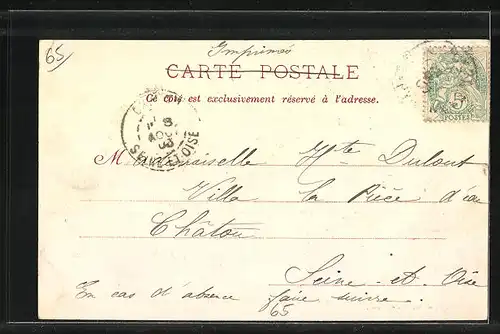 65
Imprimés
CARTE POSTALE
Ce côté est exclusivement réservé à l'adresse.
5c
POSTES
SEINE ET OISE
Mademoiselle Hte Dulout
Villa la Pièce d'eau
Châtou
Seine-et-Oise
En cas d'absence faire suivre.
65